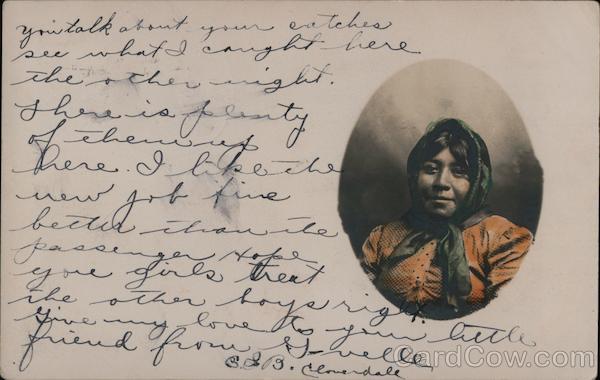 you talk about your catches
see what I caught here
the other night.
There is plenty
of them up
here. I like the
new job fine
better than the
passenger Hope
you girls treat
the other boys right.
Give my love to your little
friend from G-velle
S.S.B. Cloverdale
CardCow.com